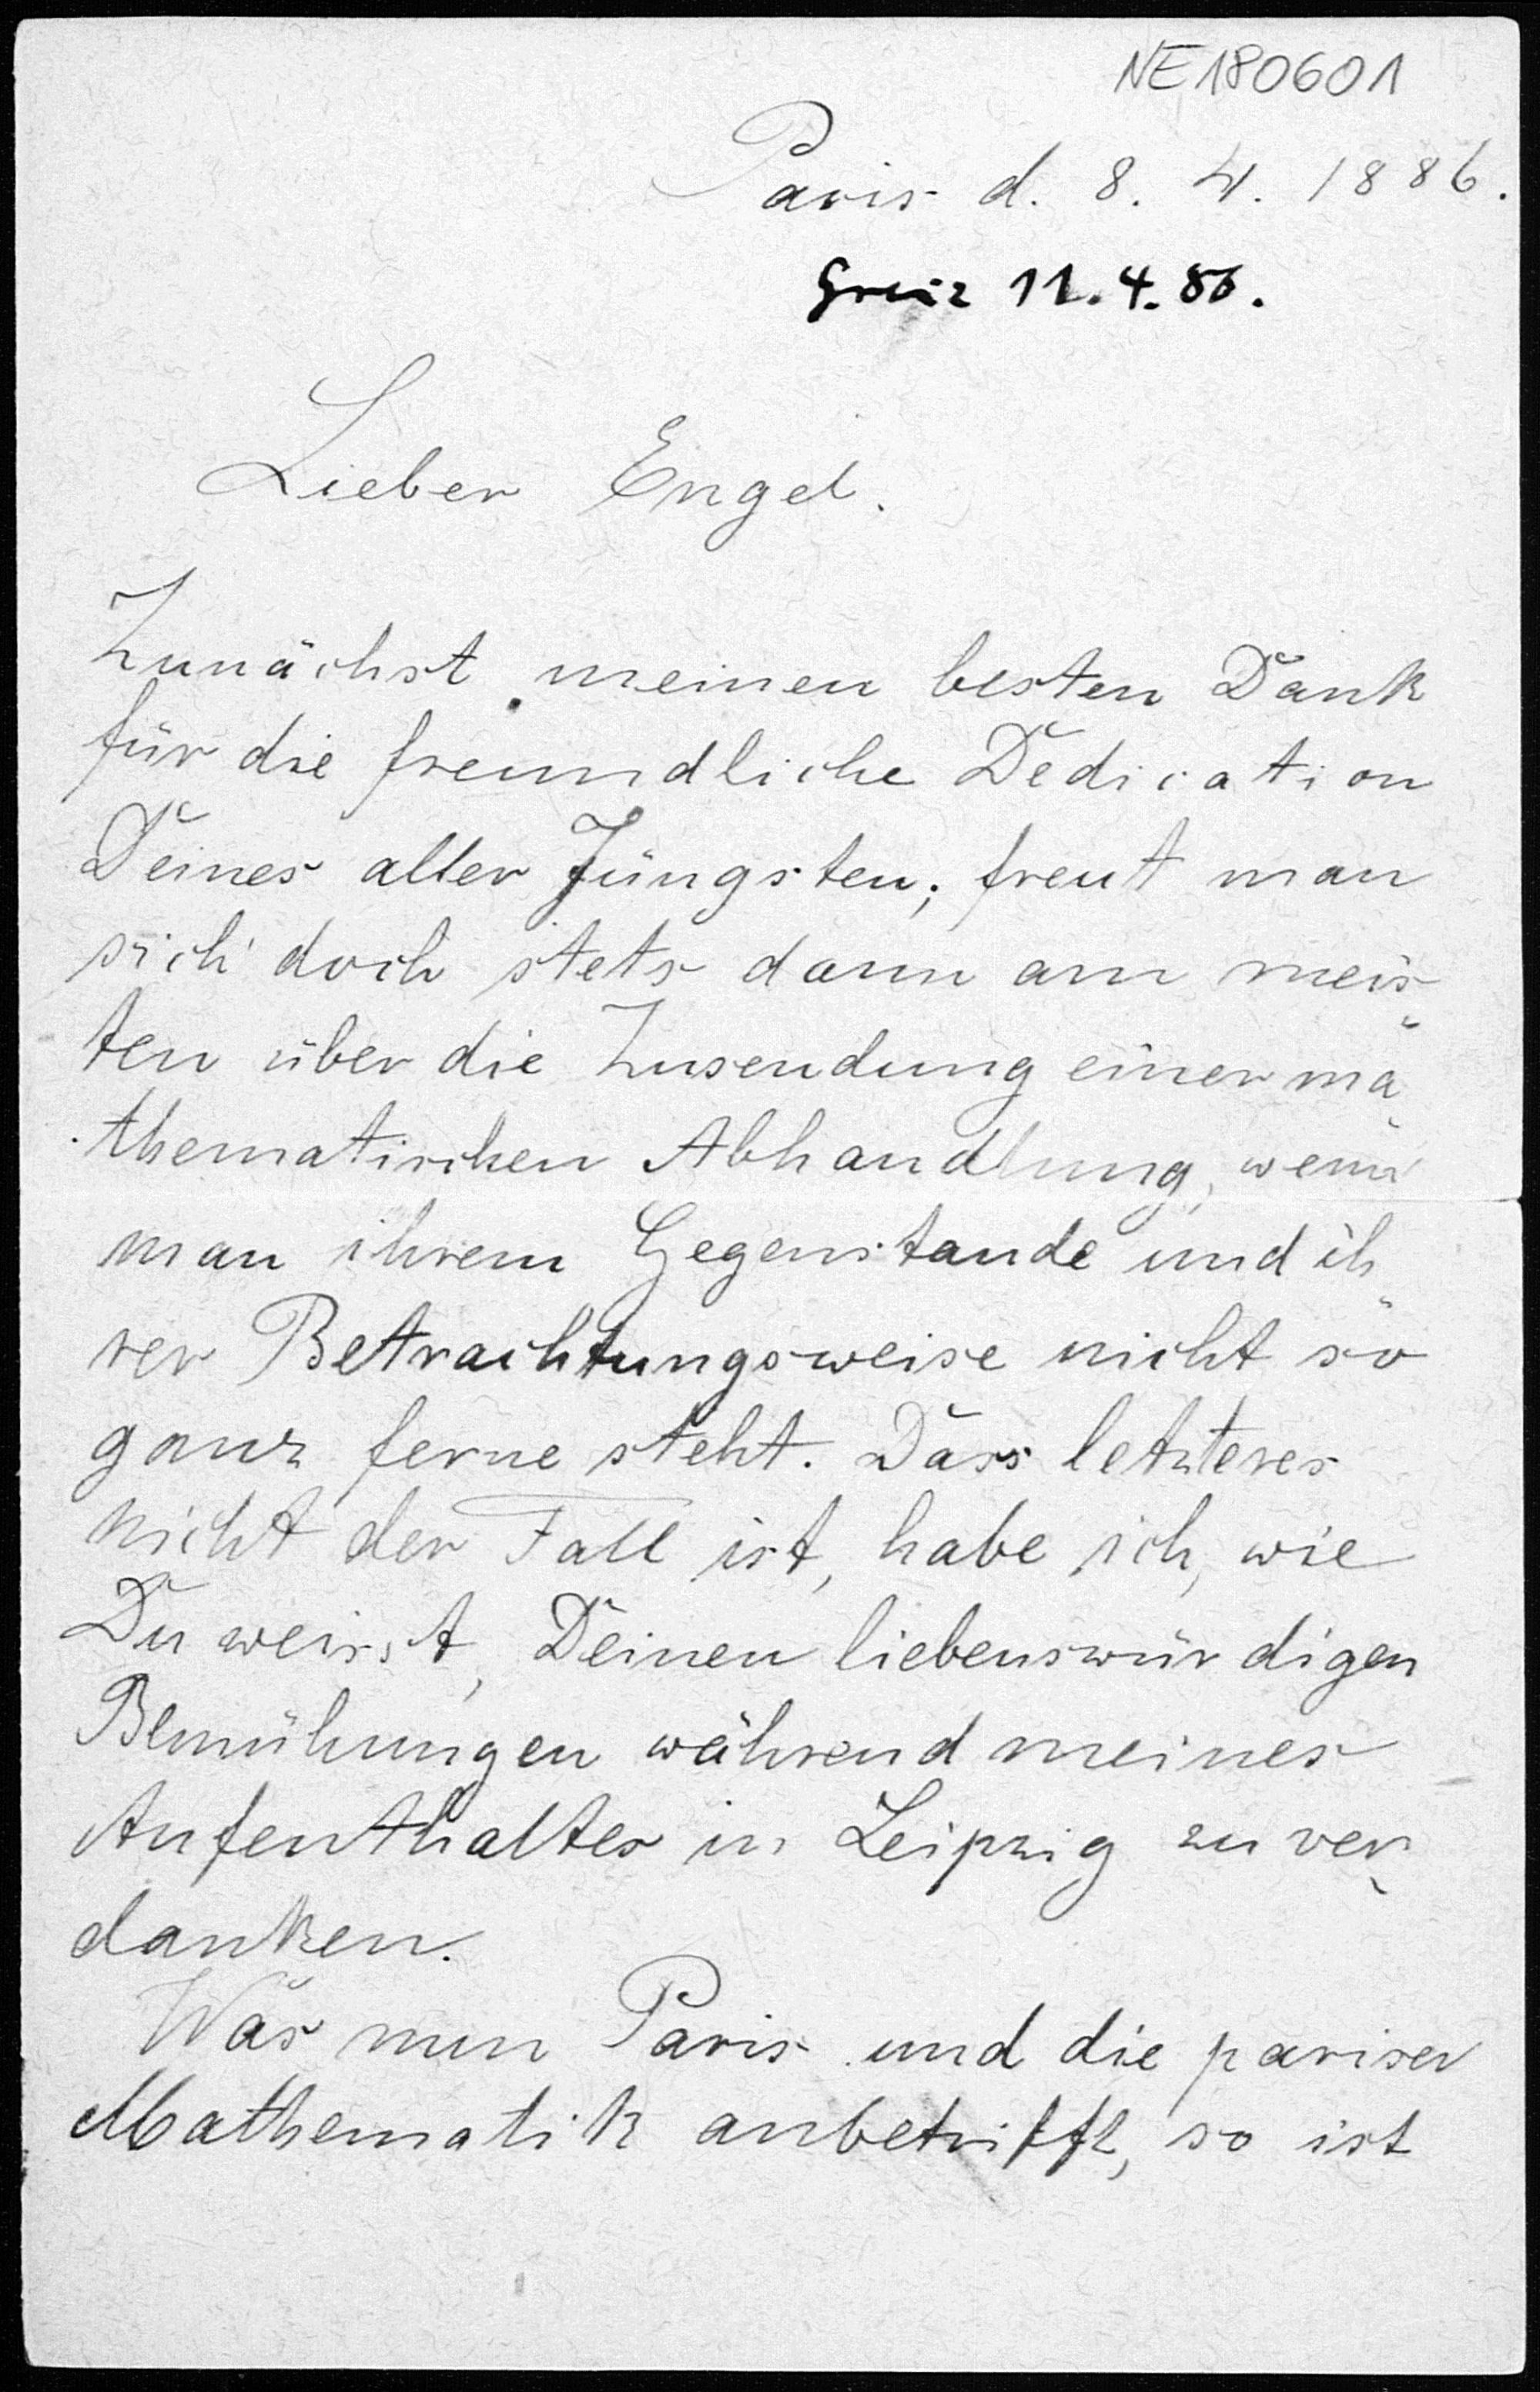 NE180601
Paris d. 8. 4. 1886.
Greiz 11.4.86.
Lieber Engel.
Zunächst meinen besten Dank
für die freundliche Dedication
Deines aller Jüngsten; freut man
sich doch stets dann am meis
ten über die Zusendung einer ma
thematischen Abhandlung, wenn
man ihrem Gegenstande und ih
rer Betrachtungsweise nicht so
ganz ferne steht. Dass letzteres
nicht der Fall ist, habe ich, wie
Du weisst, Deinen liebenswürdigen
Bemühungen während meines
Aufenthaltes in Leipzig zu ver
danken.
Was nun Paris und die pariser
Mathematik anbetrifft, so ist